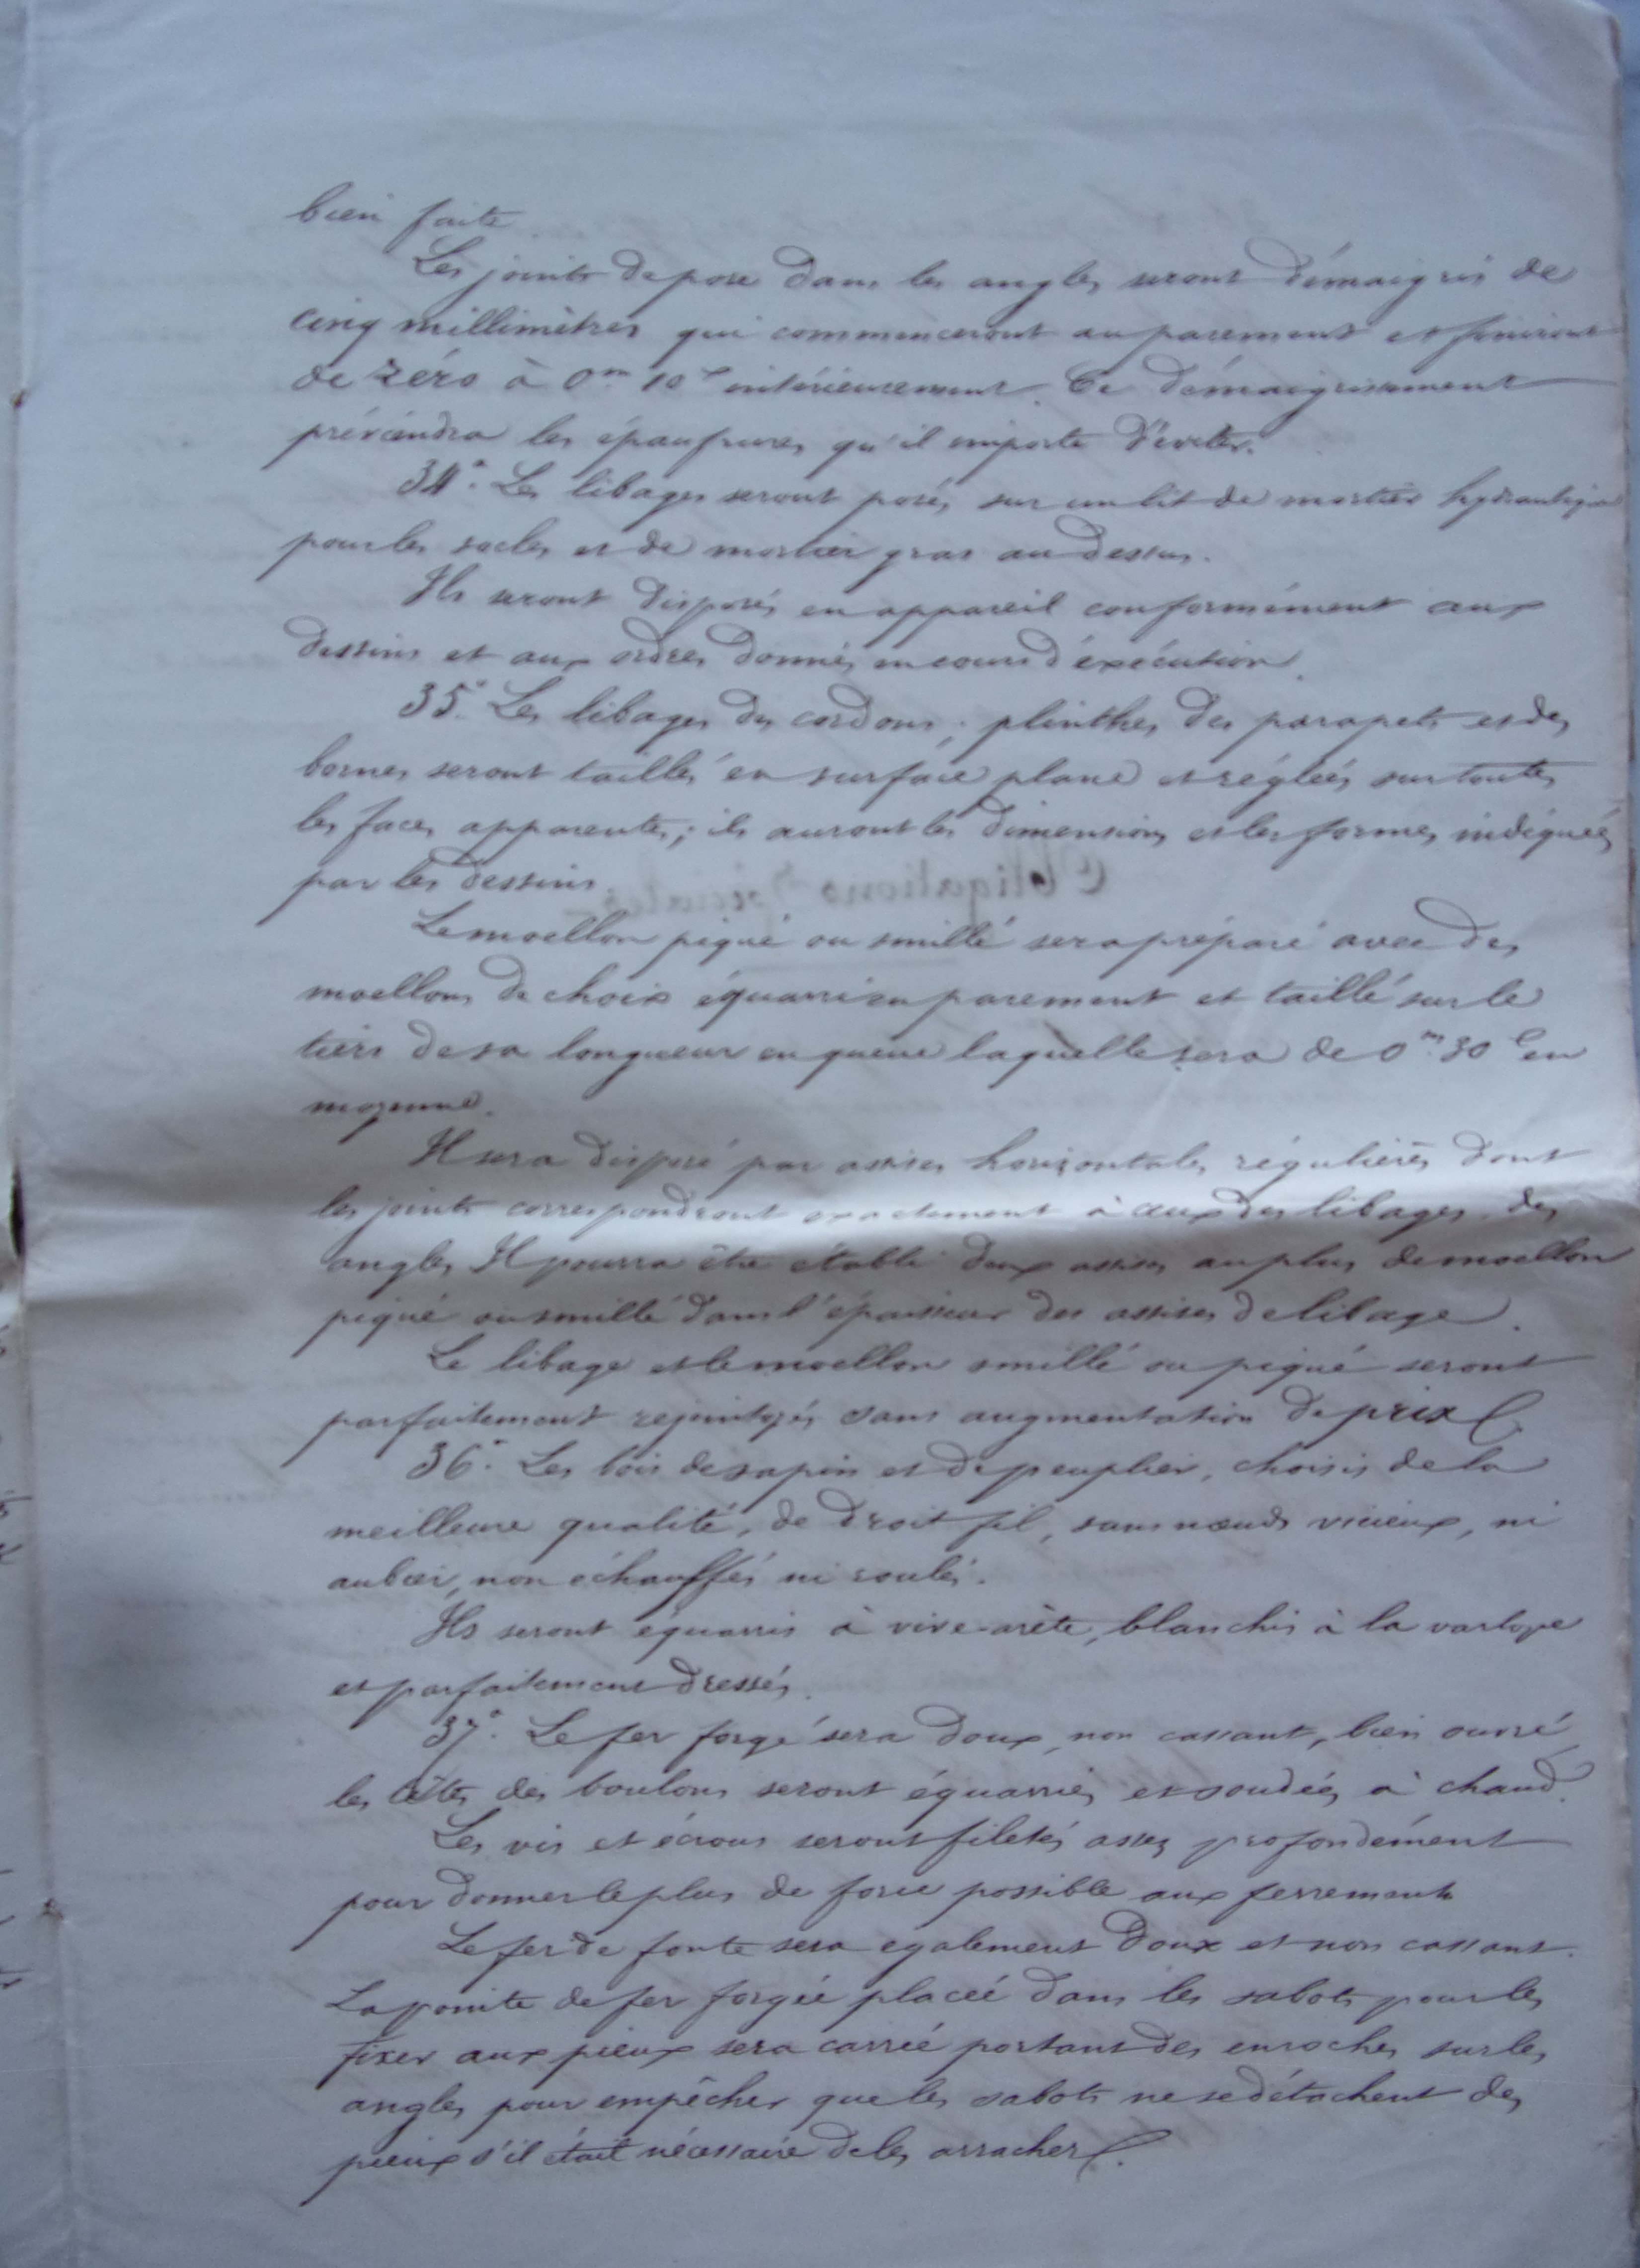 bien faite
Les joints de pose dans les angles seront démaigris de
cinq millimètres qui commenceront au parement et finiront
de zéro à 0m 10c intérieurement. Ce démaigrissement
préviendra les épaufrures qu'il importe d'éviter.
34° Les libages seront posés sur un lit de mortier hydraulique
pour les socles et de mortier gras au dessus.
Ils seront disposés en appareil conformément aux
dessins et aux ordres donnés en cours d'exécution.
35° Les libages des cordons, plinthes des parapets et des
bornes seront taillés en surface plane et réglées sur toutes
les faces apparentes; ils auront les dimensions et les formes indiquées
par les dessins
Le moellon piqué ou smillé sera préparé avec des
moellons de choix équarri en parement et taillé sur le
tiers de sa longueur en queue laquelle sera de 0m 30c en
moyenne.
Il sera disposé par assises horizontales régulières dont
les joints correspondront exactement à ceux des libages des
angles Il pourra être établi deux assises au plus de moellon
piqué ou smillé dans l'épaisseur des assises de libage.
Le libage et le moellon smillé ou piqué seront
parfaitement rejointoyés sans augmentation de prix
36° Les bois de sapin et de peuplier, choisis de la
meilleure qualité, de droit fil, sans nœuds vicieux, ni
aubier, non échauffés ni roulés.
Ils seront équarris à vive-arête, blanchis à la varlope
et parfaitement dressés.
37° Le fer forgé sera doux, non cassant, bien ouvré
les têtes des boulons seront équarries et soudées à chaud.
Les vis et écrous seront filetés assez profondément
pour donner le plus de force possible aux ferrements
Le fer de fonte sera egalement doux et non cassant.
La pointe de fer forgée placée dans les sabots pour les
fixer aux pieux sera carrée portant des enroches sur les
angles pour empêcher que les sabots ne se détachent des
pieux s'il était nécessaire de les arracher.